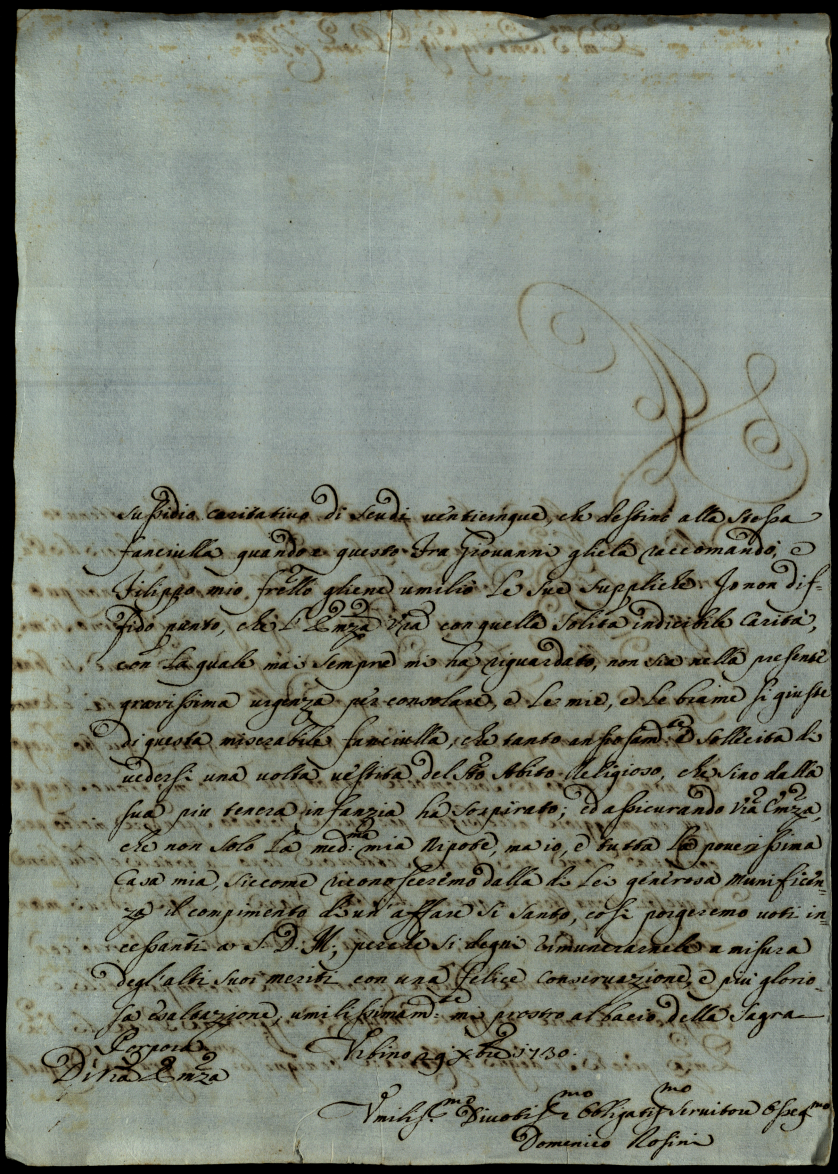 sussidio caritativo di Scudi venticinque, che destinò alla stessa
fanciulla quando a questo Fra Giovanni gliela raccomandò, e
Filippo mio fratello gliene umiliò le sue suppliche. Io non dif-
fido punto, che l'Emza Vra con quella solita indicibile Carità,
con la quale mai sempre mi ha riguardato, non sia nella presente
gravissima urgenza per consolare, e le mie, e le brame sì giuste
di questa miserabile fanciulla, che tanto ansiosamte sollecita di
vedersi una volta vestita del Sto Abito Religioso, che sino dalla
sua piu tenera infanzia hà sospirato; ed assicurando Vra Emza,
che non solo la medma mia Nipote, ma io, e tutta la poverissima
Casa mia, siccome riconosceremo dalla di Lei generosa munificen-
za il compimento di un'affare sì santo, così porgeremo voti in-
cessanti a S. D. M., perche si degni rimunerarnela a misura
degl'alti suoi meriti con una felice conservazione, e più glorio-
sa esaltazione, umilissimamte mi prostro al bacio della Sagra
Porpora
Urbino 29 Xbre 1730.
Di Vra Emza
Umilismo Divotismo Obbligatismo Servitore Osseqmo
Domenico Rosini